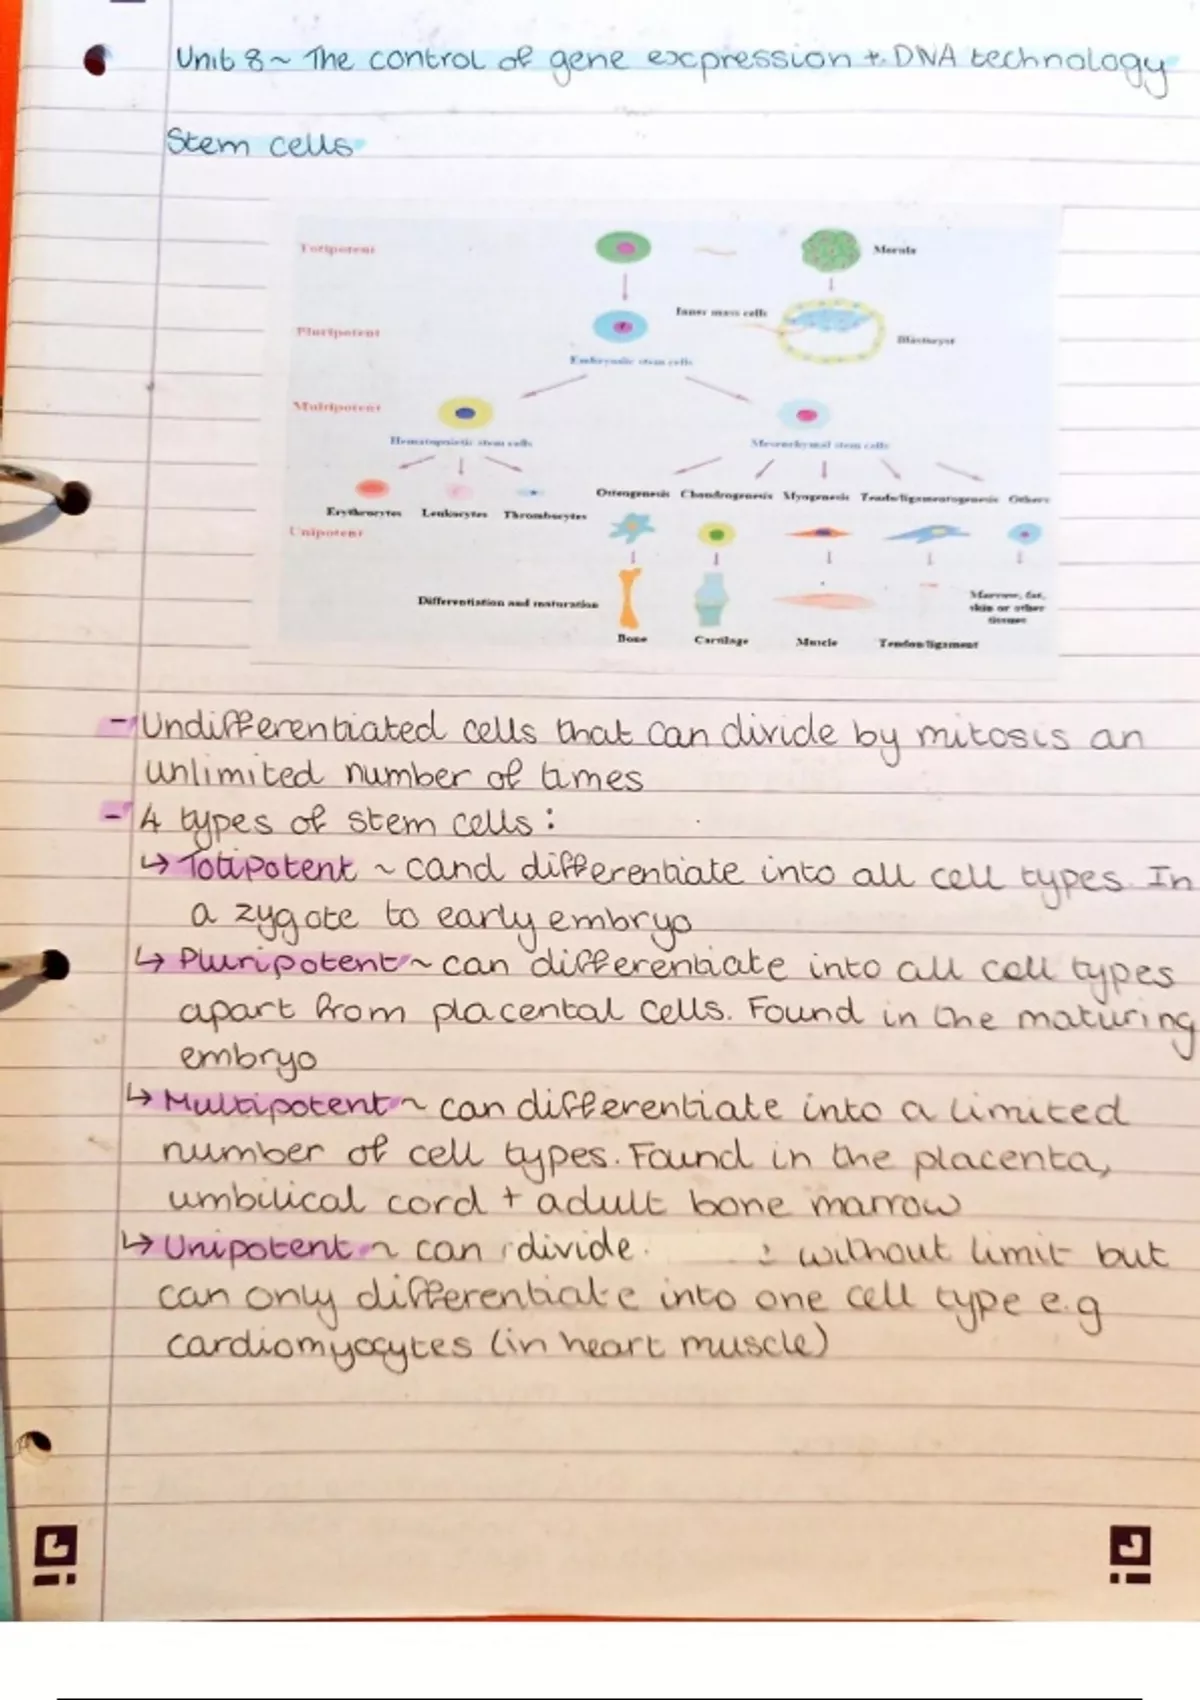 Unit 8 ~ The control of gene expression + DNA technology
Stem cells
Totipotent
Morula
Inner mass cells
Pluripotent
Blastocyst
Embryonic stem cells
Multipotent
Hematopoietic stem cells
Mesenchymal stem cells
Osteogenesis Chondrogenesis Myogenesis Tendo/ligamentogenesis Others
Erythrocytes Leukocytes Thrombocytes
Unipotent
Differentiation and maturation
Marrow, fat,
skin or other
tissues
Bone Cartilage Muscle Tendon/ligament
- Undifferentiated cells that can divide by mitosis an
unlimited number of times
- 4 types of stem cells :
↳ Totipotent ~ cand differentiate into all cell types. In
a zygote to early embryo
↳ Pluripotent ~ can differentiate into all cell types
apart from placental cells. Found in the maturing
embryo
↳ Multipotent ~ can differentiate into a limited
number of cell types. Found in the placenta,
umbilical cord + adult bone marrow
↳ Unipotent ~ can divide without limit but
can only differentiate into one cell type e.g
cardiomyocytes (in heart muscle)